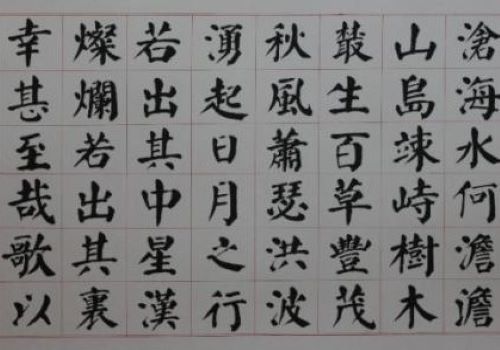 滄海水何澹澹
山島竦峙樹木
叢生百草豐茂
秋風蕭瑟洪波
湧起日月之行
若出其中星漢
燦爛若出其裏
幸甚至哉歌以